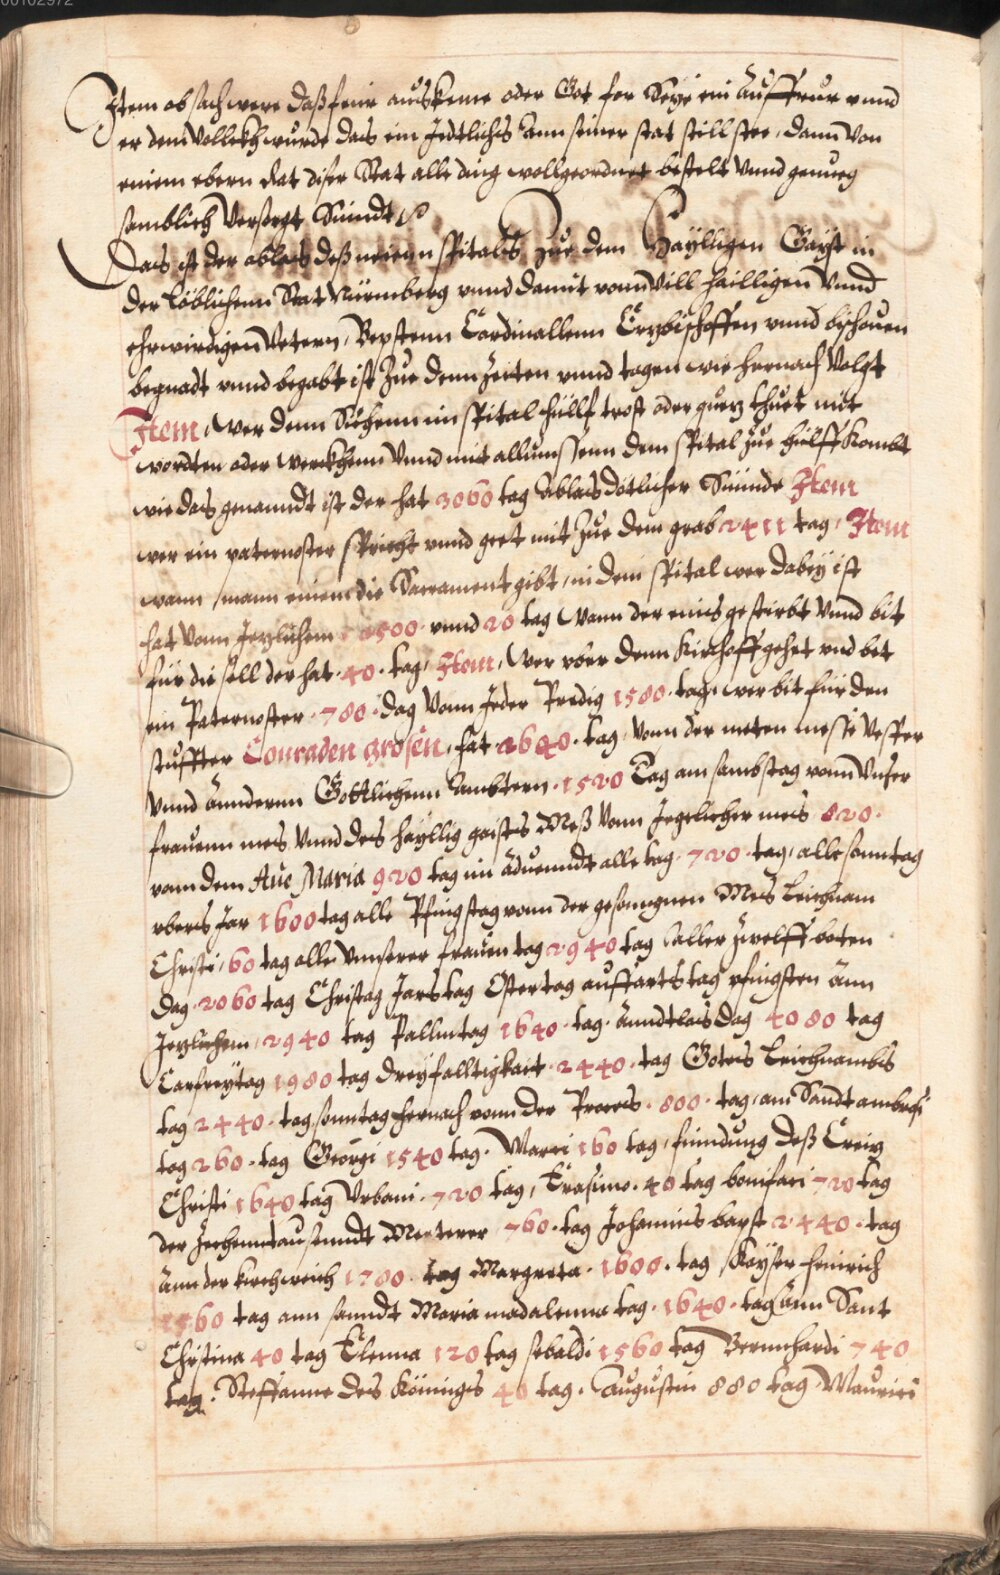 00102972
Item ob sach were das feuir auskeme oder Got for Seÿe ein auffruor unnd
er dem Vollckh wurde das ein Jedtlichs ann seiner stat still stee, dann von
einem ebern Rat diser Stat alle ding wollgeordnet bestelt Vnnd genueg
samblich Versorgt Sindt
Das ist der ablas deß neienn spitals zue dem Haÿlligen Gaÿst in
der Löblichenn Stat Nürmberg vnnd damit vonn Vill hailligen Vnnd
ehrwirdigen Vetern, Bepstenn Cardinallenn Erzbischoffen vnnd bischouen
begnadt vnnd begabt ist Zue denn Zeiten vnnd tagen wie hernach Volgt
Item, Wer denn Siechenn im spital hillf trost oder guetz thuet mit
wordten oder werckhenn Vnnd mit allmussenn dem spital zue hülff Kombt
wie das genanndt ist der hat 3060 tag Ablas dötlicher Sünnde Item
wer ein paternoster spricht vnnd geet mit Zue dem grab 2411 tag, Item
wann mann einem die Sacrament gibt, in dem spital wer dabeÿ ist
hat Vonn Jezlichem 1500 vnnd 20 tag Wann der eines gestirbt Vnnd bit
für die sell der hat 40 tag, Item, Wer vber denn Kirchoff gehet vnd bet
ein Paternoster 780 dag Vonn Jeder Predig 1580 tag, wer bit für den
stuffter Conraden grosen, hat 2640 tag, Vonn der meten messe Vesper
Vnnd anndernn Gottlichenn Ambtern 1520 Tag am sambstag vonn Vnser
frauenn mes Vnnd des haÿllig gaistes Meß Vonn Jegelicher mes 820
vonn dem Aue Maria 920 tag im aduenndt alle tag 720 tag, alle sonntag
vbers Jar 1600 tag alle Pfingstag vonn der gesonngnen Mes Leichnam
Christi, 60 tag alle Vnnserer frauen tag 2940 tag aller Zwelff boten
dag 2060 tag Christag Jarstag Ostertag auffartstag pfingsten ann
Jezlichem, 2940 tag Pallmtag 1640 tag Anndtlas dag 4080 tag
Carfreytag 1980 tag dreyfalltigkait 2440 tag Gotes Leichnambs
tag 2440 tag sonntag hernach vonn der Proces 800 tag, am Sandt ambrosi
tag 260 tag Georgi 1540 tag Marci 160 tag, finndung deß Creiz
Christi 1640 tag Vrbani 720 tag, Erasimo 40 tag bonifaci 720 tag
der Zechenntausenndt Merterer 760 tag Johannes babst 2440 tag
ann der kirchweich 1780 tag Margreta 1600 tag Kaÿser heinrich
1560 tag ann sanndt Maria madalenna tag 1640 tag ann Sant
Christina 40 tag Elenna 120 tag sebaldi 1560 tag Bernnhardi 740
tag Steffanne des Köninges 40 tag Augustin 880 tag Mauricii